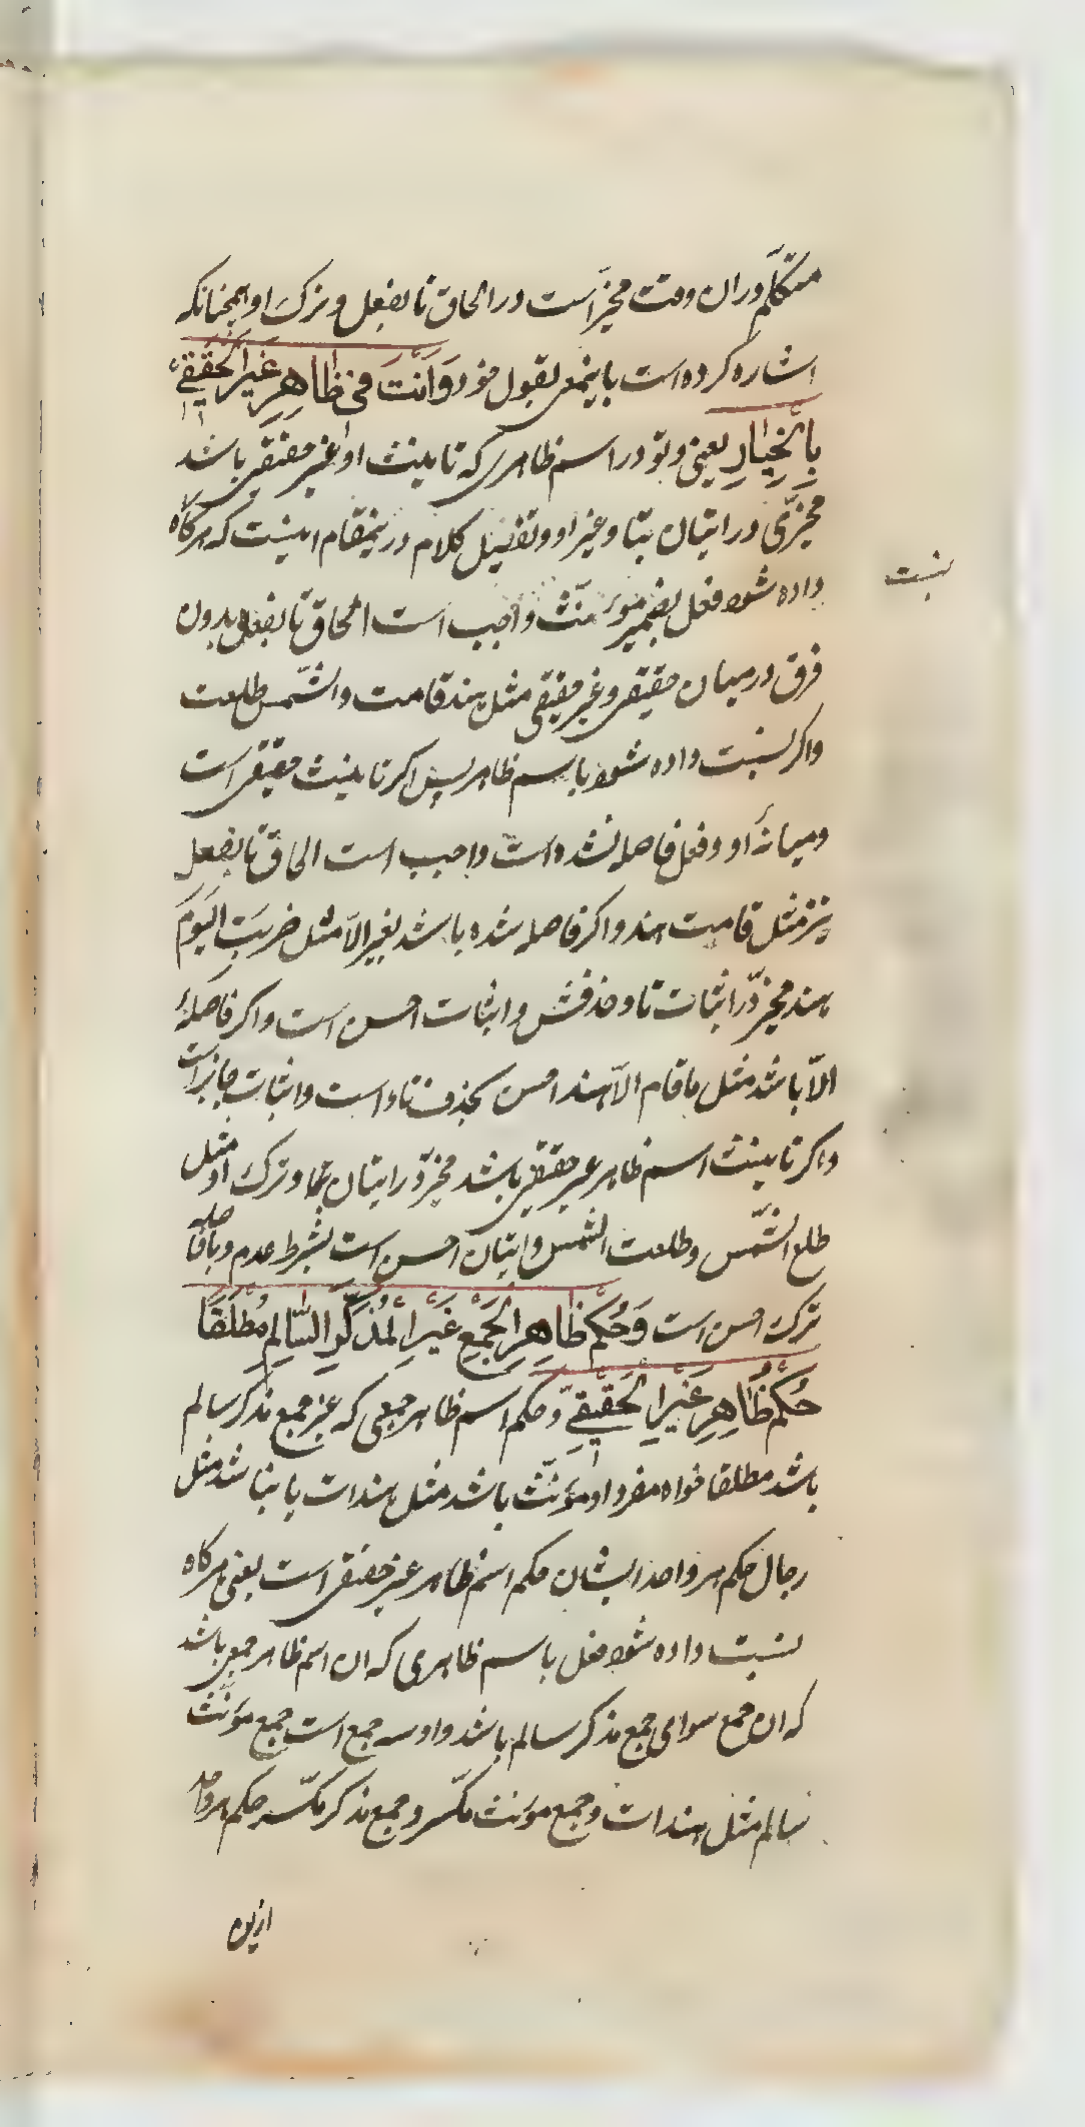 متکلم دران وقت مخیّر است در الحاق تا بفعل و ترک او همچنانکه
اشاره کرده است باینمعنی بقول خود وَاَنْتَ فی ظاهِرِ غَیْرِ الْحَقیقیِّ
بِالْخِیارِ یعنی و تو در اسم ظاهری که تانیث او غیر حقیقی باشد
مخیّری در اتیان بتا و غیر او و تفصیل کلام درینمقام اینست که هرگاه
نسبت
داده شود فعل بضمیر مؤنّث واجب است الحاق تا بفعل بدون
فرق درمیان حقیقی و غیر حقیقی مثل هند قامت و الشّمس طلعت
و اگر نسبت داده شود باسم ظاهر پس اگر تانیث حقیقی است
و میانهٔ او و فعل فاصله نشده است واجب است الحاق تا بفعل
نیز مثل قامت هند و اگر فاصله شده باشد بغیر الاّ مثل ضربَتِ الیَومَ
هند مخیّر در اثبات تا و حذفش و اثبات احسن است و اگر فاصلهٔ
الاّ باشد مثل ما قام الاّ هند احسن حذف تاء است و اثبات جایز است
و اگر تانیث اسم ظاهر غیر حقیقی باشد مخیّر در اتیان بتا و ترک او مثل
طلع الشّمس و طلعت الشمس و اتیان احسن است بشرط عدم و با فاصله
ترک احسن است وَحُکْمُ ظاهِرِ الْجَمْعِ غَیْرِ الْمُذَکَّرِ السّالِمِ مُطْلَقًا
حُکْمُ ظاهِرِ غَیْرِ الْحَقیقیِّ و حکم اسم ظاهر جمعی که غیر جمع مذکر سالم
باشد مطلقا خواه مفرد او مؤنّث باشد مثل هندات یا نباشد مثل
رجال حکم هر واحد ایشان حکم اسم ظاهر غیر حقیقی است یعنی هرگاه
نسبت داده شود فعل باسم ظاهری که ان اسم ظاهر جمعی باشد
که ان جمع سوای جمع مذکر سالم باشد و او سه جمع است جمع مؤنّث
سالم مثل هندات و جمع مؤنث مکسّر و جمع مذکر مکسّر حکم هر واحد